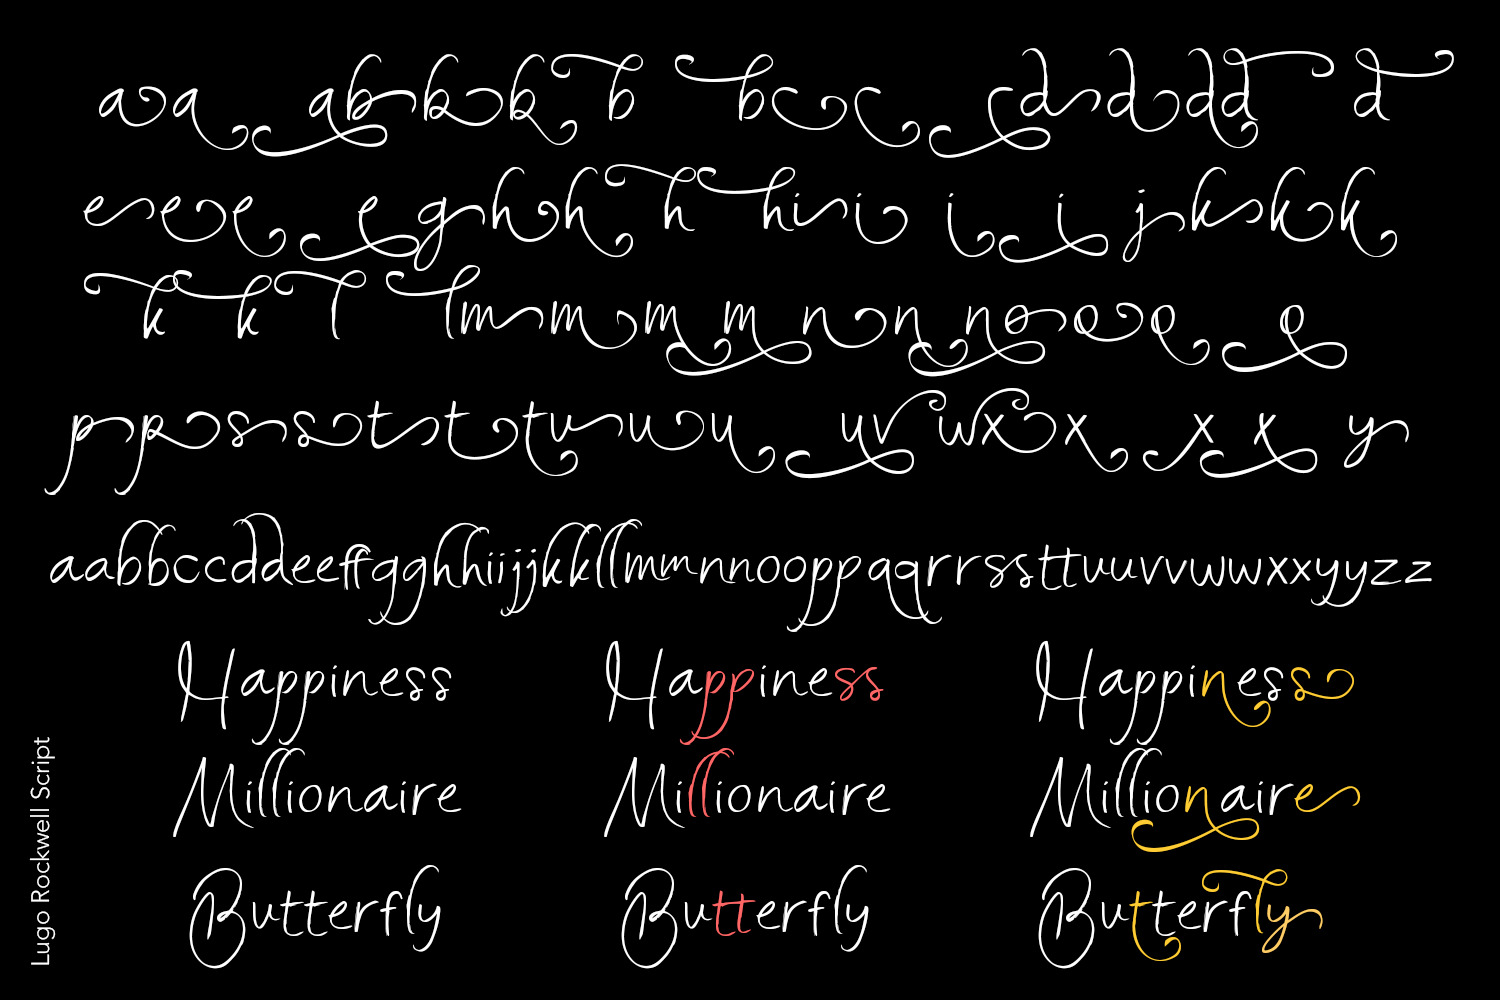 a a a b b b b b c c c d d d d d
e e e e g h h h h i i i i j k k k
k k l l m m m m n n n o o o o
p p s s t t t u u u u v w x x x x y
aabbccddeeffgghhiijjkkllmmnnooppqqrrssttuuvvwwxxyyzz
Happiness Happiness Happiness
Millionaire Millionaire Millionaire
Butterfly Butterfly Butterfly
Lugo Rockwell Script